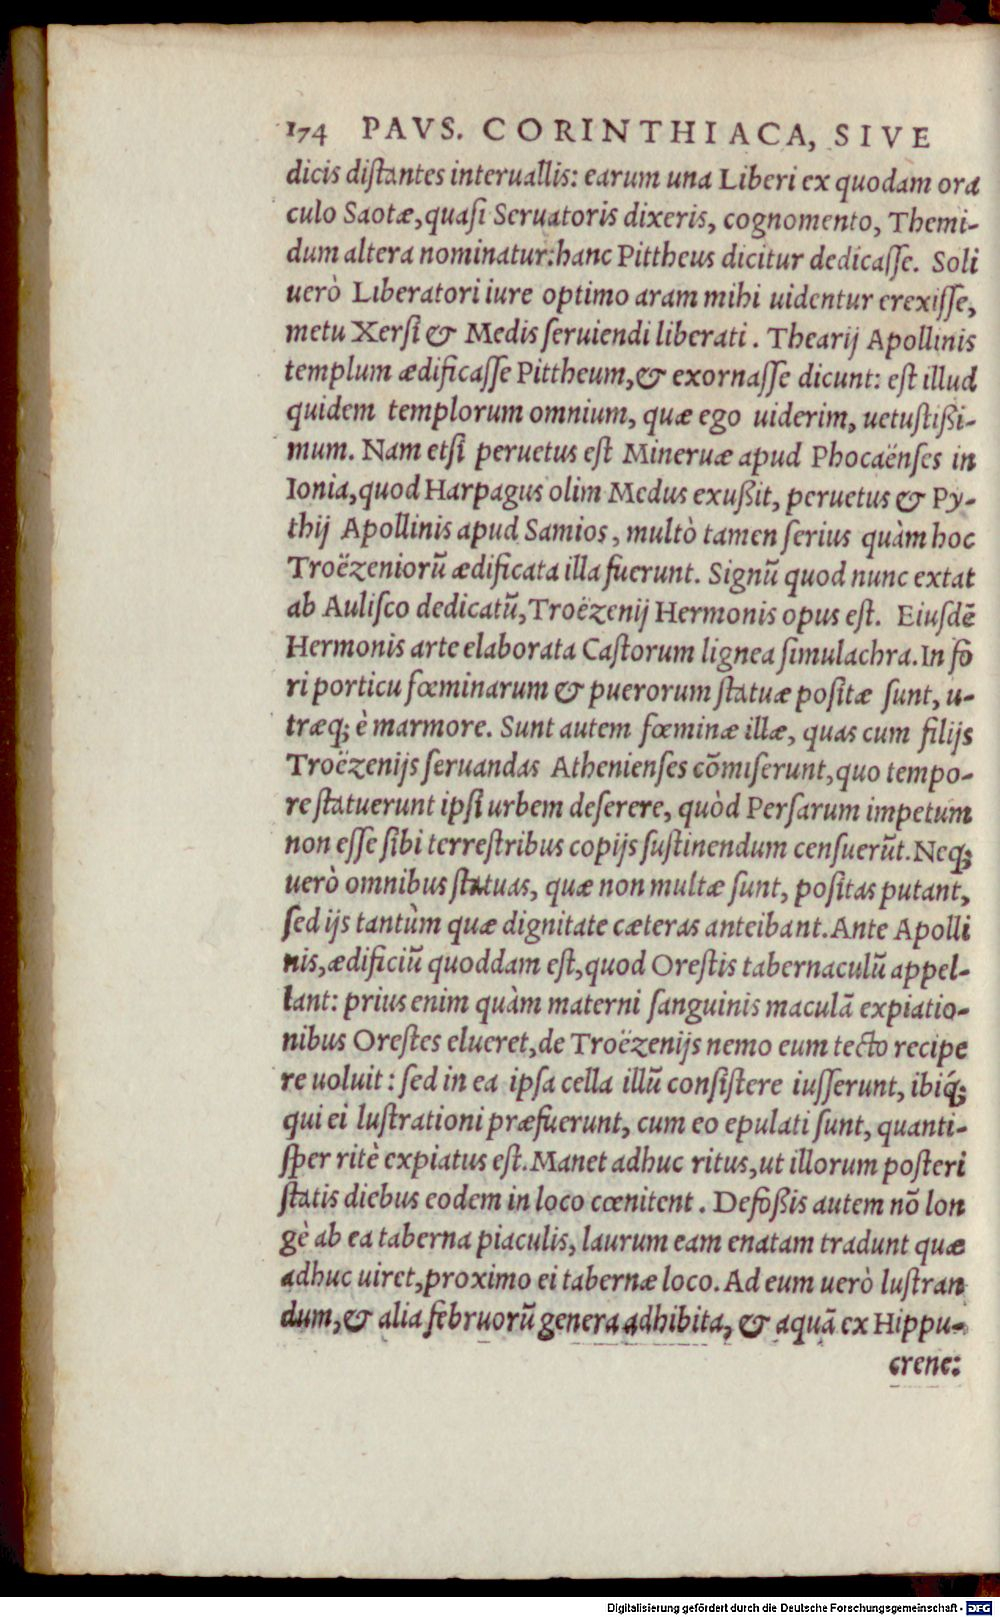 174 PAVS. CORINTHIACA, SIVE
dicis distantes interuallis: earum una Liberi ex quodam ora
culo Saotæ, quasi Seruatoris dixeris, cognomento, Themi-
dum altera nominatur: hanc Pittheus dicitur dedicasse. Soli
uerò Liberatori iure optimo aram mihi uidentur erexisse,
metu Xersi & Medis seruiendi liberati. Thearij Apollinis
templum ædificasse Pittheum, & exornasse dicunt: est illud
quidem templorum omnium, quæ ego uiderim, uetustißi-
mum. Nam etsi peruetus est Mineruæ apud Phocaënses in
Ionia, quod Harpagus olim Medus exußit, peruetus & Py-
thij Apollinis apud Samios, multò tamen serius quàm hoc
Troëzeniorũ ædificata illa fuerunt. Signũ quod nunc extat
ab Aulisco dedicatũ, Troëzenij Hermonis opus est. Eiusdẽ
Hermonis arte elaborata Castorum lignea simulachra. In fo
ri porticu fœminarum & puerorum statuæ positæ sunt, u-
træq; è marmore. Sunt autem fœminæ illæ, quas cum filijs
Troëzenijs seruandas Athenienses cõmiserunt, quo tempo-
re statuerunt ipsi urbem deserere, quòd Persarum impetum
non esse sibi terrestribus copijs sustinendum censuerũt. Neq;
uerò omnibus statuas, quæ non multæ sunt, positas putant,
sed ijs tantùm quæ dignitate cæteras anteibant. Ante Apolli
nis, ædificiũ quoddam est, quod Orestis tabernaculũ appel-
lant: prius enim quàm materni sanguinis maculã expiatio-
nibus Orestes elueret, de Troëzenijs nemo eum tecto recipe
re uoluit: sed in ea ipsa cella illũ consistere iusserunt, ibiq́;
qui ei lustrationi præfuerunt, cum eo epulati sunt, quanti-
sper ritè expiatus est. Manet adhuc ritus, ut illorum posteri
statis diebus eodem in loco cœnitent. Defoßis autem nõ lon
gè ab ea taberna piaculis, laurum eam enatam tradunt quæ
adhuc uiret, proximo ei tabernæ loco. Ad eum uerò lustran
dum, & alia februorũ genera adhibita, & aquã ex Hippu-
crene:
Digitalisierung gefördert durch die Deutsche Forschungsgemeinschaft - DFG